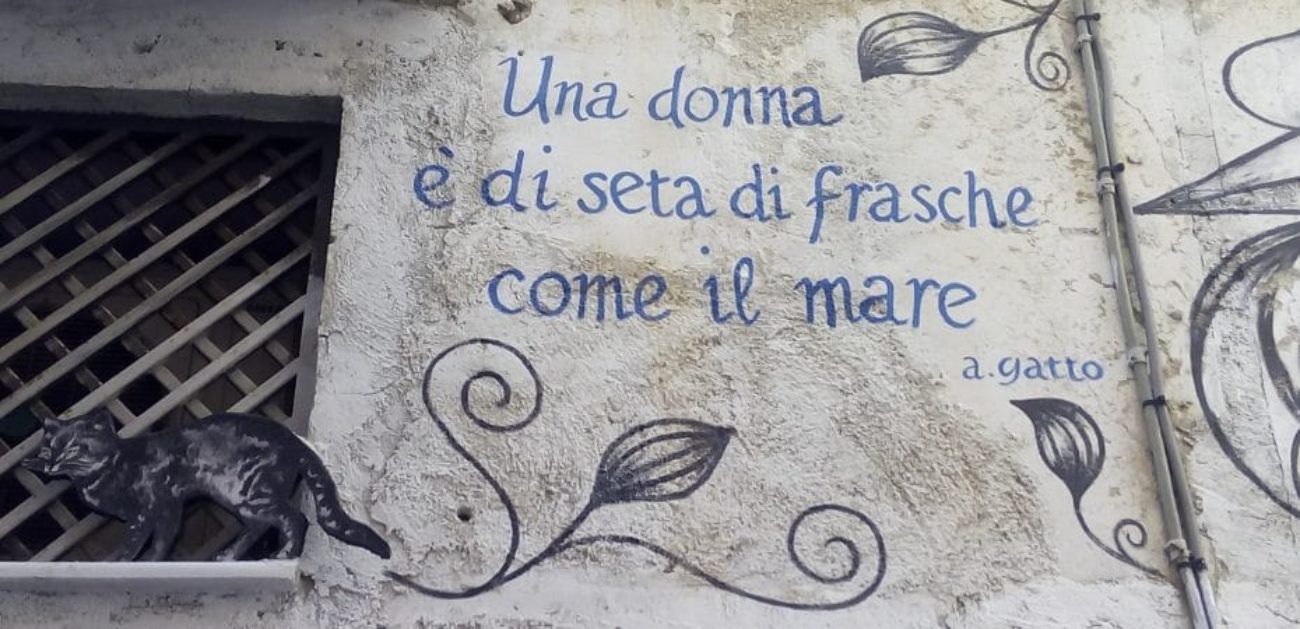 Una donna
è di seta di frasche
come il mare
a.gatto